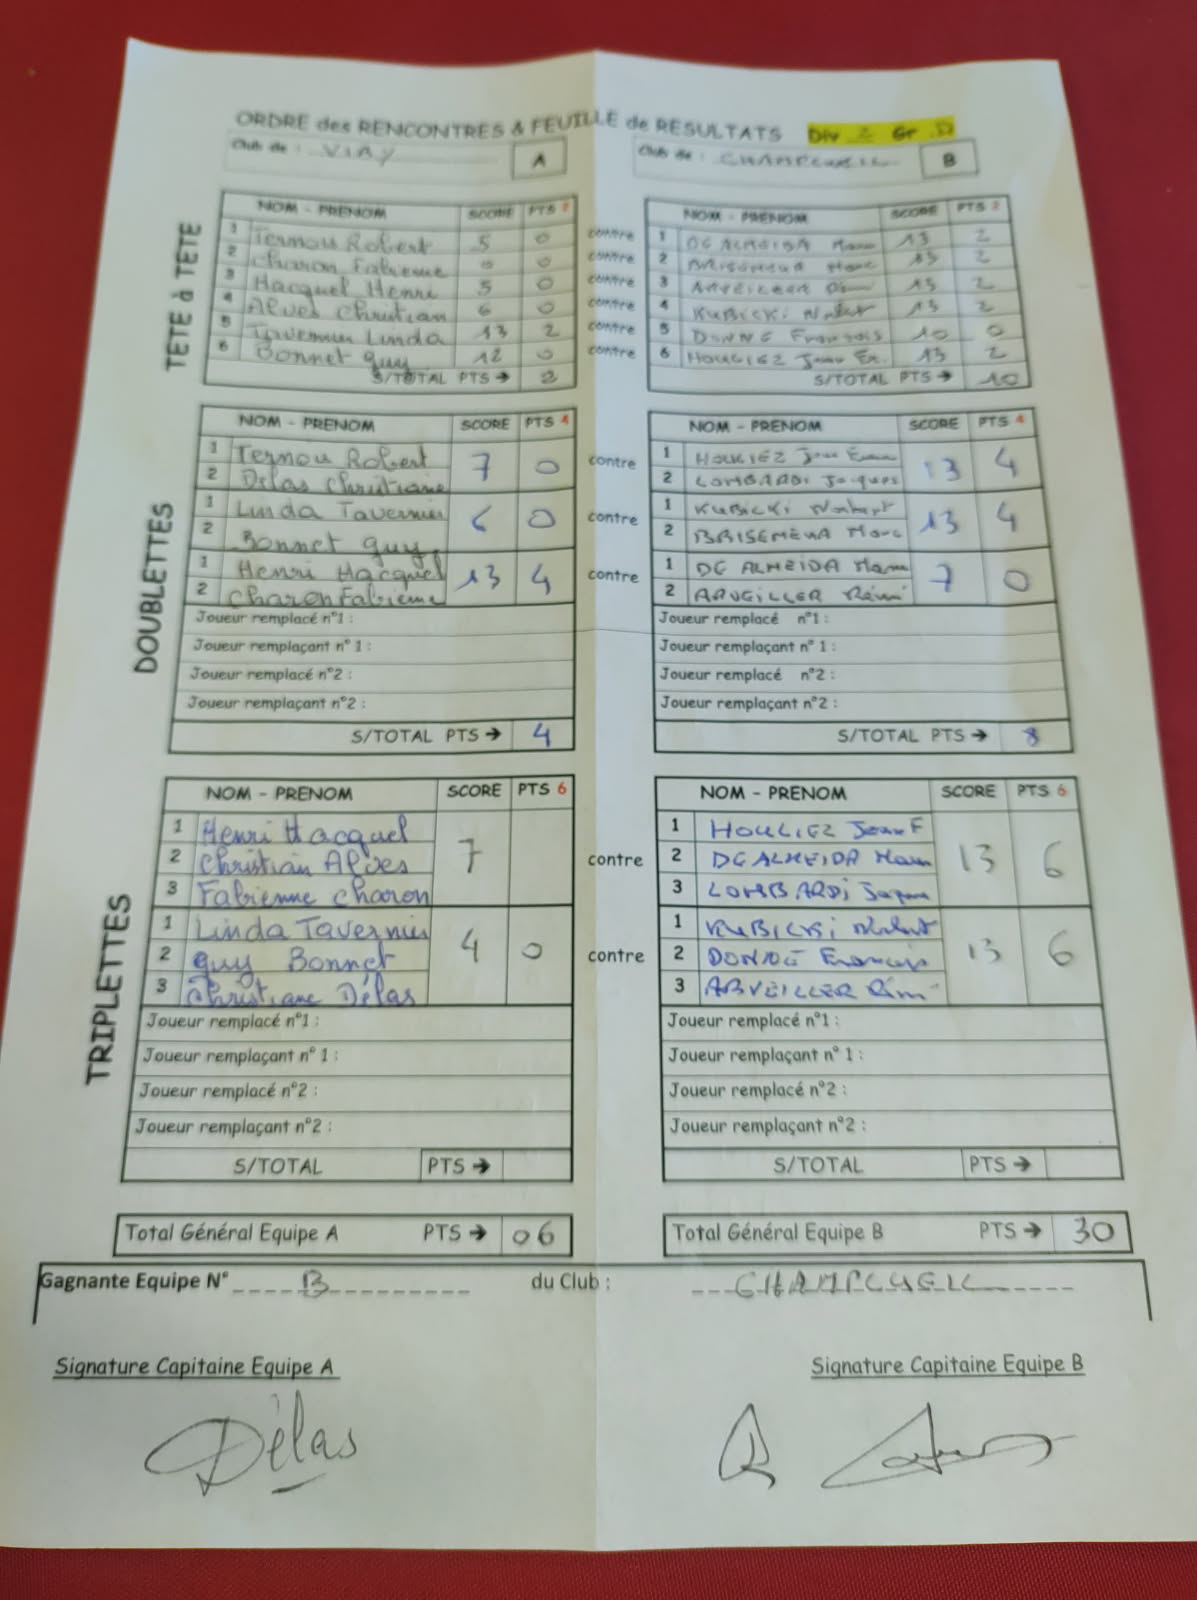 ORDRE des RENCONTRES & FEUILLE de RESULTATS Div 2 Gr
Club de : VIRY A
Club de : B
TETE à TETE
NOM - PRENOM SCORE PTS 2 NOM - PRENOM SCORE PTS 2
1 Ternou Robert 5 0 contre 1 DE ALMEIDA Manu 13 2
2 Charon Fabienne 0 contre 2 Marc 13 2
3 Hacquel Henri 5 0 contre 3 13 2
4 Alves Christian 6 0 contre 4 KUBICKI Norbert 13 2
5 Tavernier Linda 13 2 contre 5 François 10 0
6 Bonnet guy 12 0 contre 6 HOULIEZ Jean Fr. 13 2
S/TOTAL PTS → 2 S/TOTAL PTS → 10
DOUBLETTES
NOM - PRENOM SCORE PTS 4 NOM - PRENOM SCORE PTS 4
1 Ternou Robert 7 0 contre 1 HOULIEZ Jean 13 4
2 Délas Christiane 2 LOMBARDI Jacques
1 Linda Tavernier 6 0 contre 1 KUBICKI Norbert 13 4
2 Bonnet guy 2 BRISEMEUR Marc
1 Henri Hacquel 13 4 contre 1 DE ALMEIDA Manu 7 0
2 Charon Fabienne 2 ARVEILLER Rémi
Joueur remplacé n°1 : Joueur remplacé n°1 :
Joueur remplaçant n° 1 : Joueur remplaçant n° 1 :
Joueur remplacé n°2 : Joueur remplacé n°2 :
Joueur remplaçant n°2 : Joueur remplaçant n°2 :
S/TOTAL PTS → 4 S/TOTAL PTS → 8
TRIPLETTES
NOM - PRENOM SCORE PTS 6 NOM - PRENOM SCORE PTS 6
1 Henri Hacquel 7 contre 1 HOULIEZ Jean F 13 6
2 Christian Alves 2 DE ALMEIDA Manu
3 Fabienne Charon 3 LOMBARDI Jacques
1 Linda Tavernier 4 0 contre 1 KUBICKI Norbert 13 6
2 guy Bonnet 2 François
3 Christiane Délas 3 ARVEILLER Rémi
Joueur remplacé n°1 : Joueur remplacé n°1 :
Joueur remplaçant n° 1 : Joueur remplaçant n° 1 :
Joueur remplacé n°2 : Joueur remplacé n°2 :
Joueur remplaçant n°2 : Joueur remplaçant n°2 :
S/TOTAL PTS → S/TOTAL PTS →
Total Général Equipe A PTS → 06 Total Général Equipe B PTS → 30
Gagnante Equipe N° B du Club : CHAMPCUEIL
Signature Capitaine Equipe A Signature Capitaine Equipe B
Délas